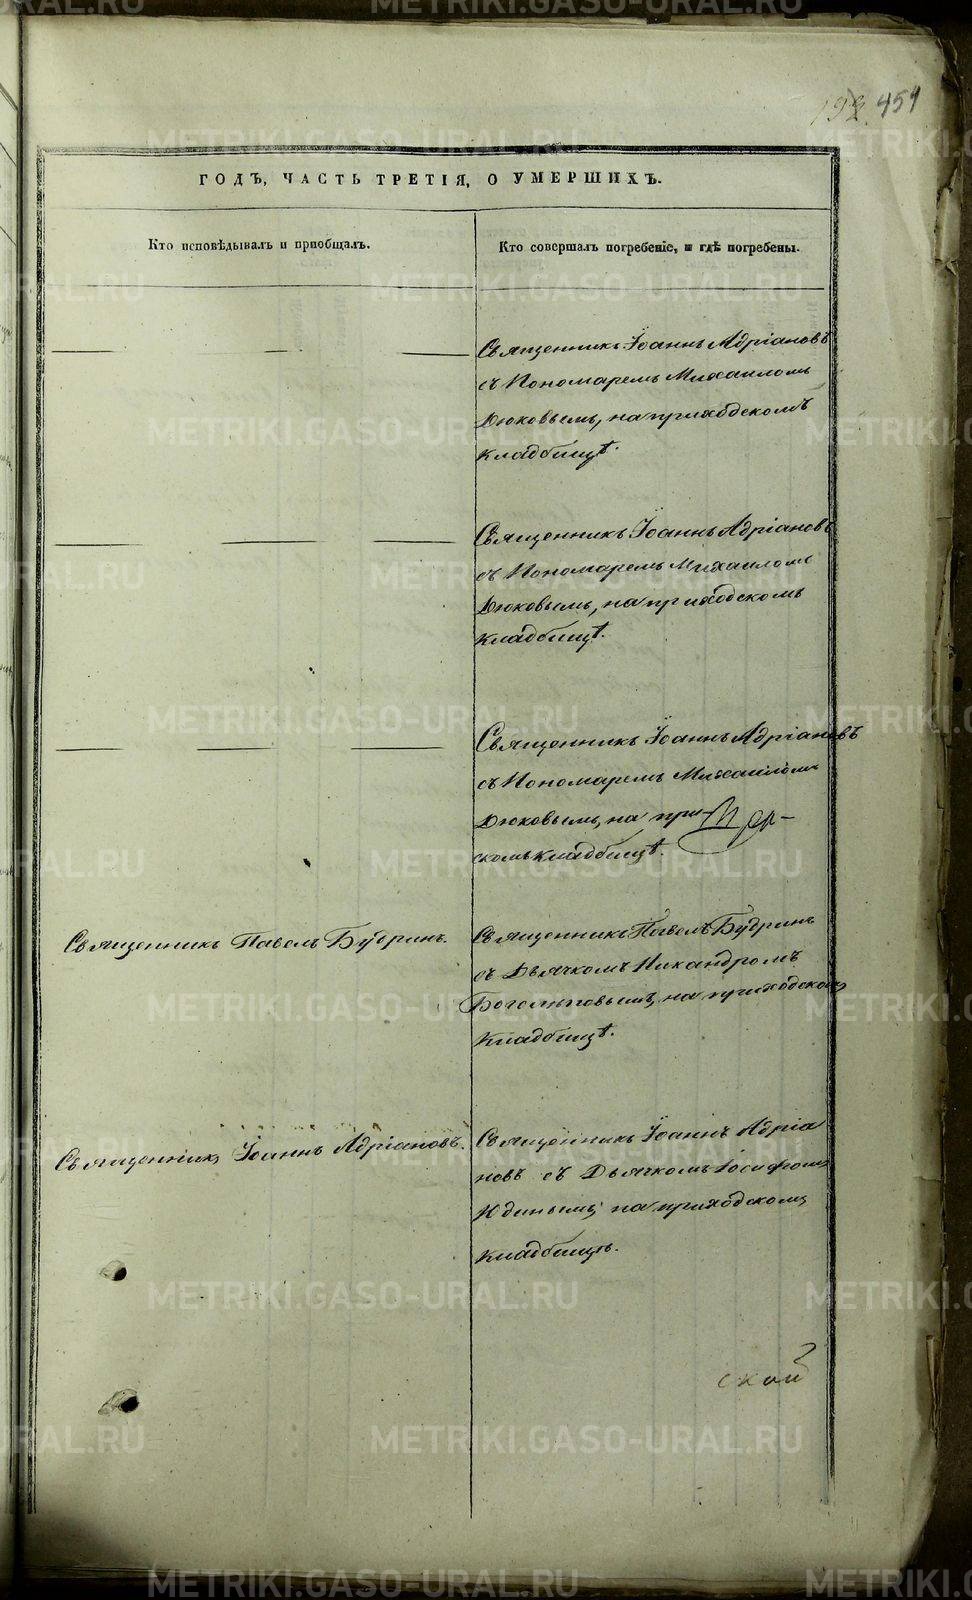 193. 454
ГОДЪ, ЧАСТЬ ТРЕТІЯ, О УМЕРШИХЪ.
Кто исповѣдывалъ и пріобщалъ.
Кто совершалъ погребеніе, и гдѣ погребены.
Священникъ Іоаннъ Адріановъ
съ Пономаремъ Михаиломъ
Дюковымъ, на приходскомъ
кладбищѣ.
Священникъ Іоаннъ Адріановъ
съ Пономаремъ Михаиломъ
Дюковымъ, на приходскомъ
кладбищѣ.
Священникъ Іоаннъ Адріановъ
съ Пономаремъ Михаиломъ
Дюковымъ, на при-
скомъ кладбищѣ.
Священникъ Павелъ Будринъ.
Священникъ Павелъ Будринъ
съ Дьячкомъ Никандромъ
Боголѣповымъ, на приходскомъ
кладбищѣ.
Священникъ Іоаннъ Адріановъ.
Священникъ Іоаннъ Адріа
новъ съ Дьячкомъ Іосифомъ
Юдинымъ, на приходскомъ
кладбищѣ.
ской
METRIKI.GASO-URAL.RU